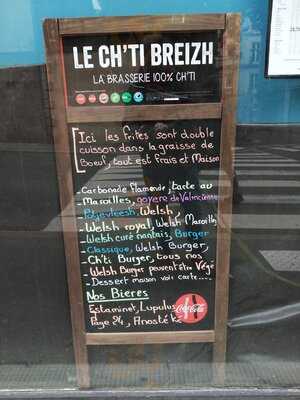 LE CH'TI BREIZH
LA BRASSERIE 100% CH'TI
Ici les frites sont double
cuisson dans la graisse de
Boeuf, tout est frais et Maison
- Carbonade flamande, tarte au
Maroilles, goyere de Valencienne
Potjevleesh, Welsh,
- Welsh royal, Welsh Maroilles
- Welsh curé nantais, Burger
Classique, Welsh Burger,
- Ch'ti Burger, tous nos
- Welsh Burger peuvent être Végé
- Dessert maison voir carte...
Nos Bieres
Estaminet, Lupulus
Page 24, Anosteké
Coca-Cola